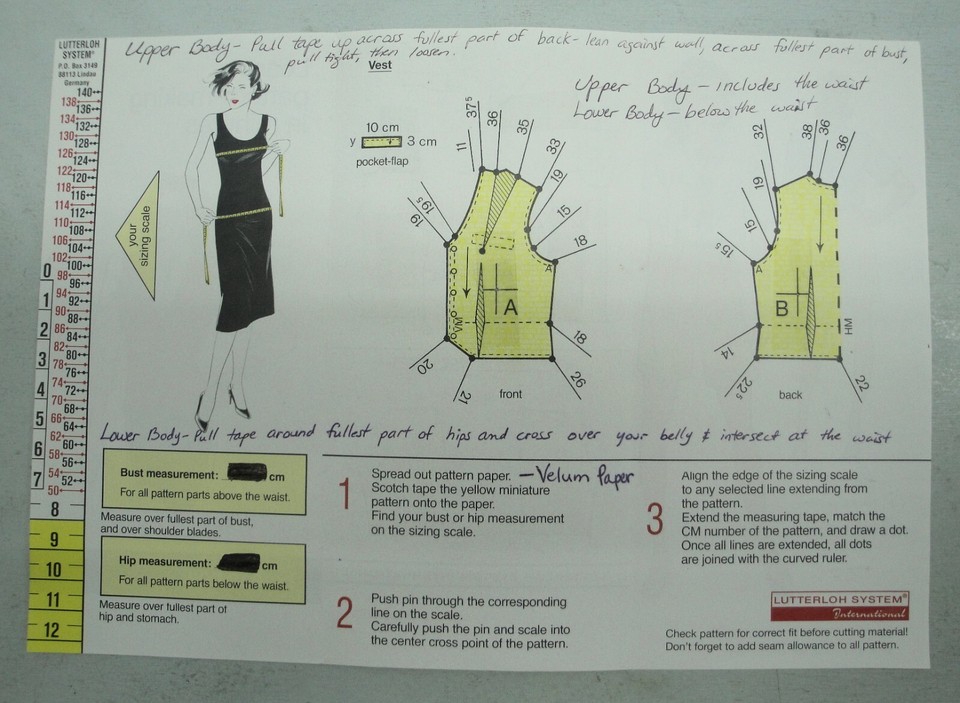 Upper Body - Pull tape up across fullest part of back - lean against wall, across fullest part of bust,
pull tight, then loosen.
LUTTERLOH
SYSTEM®
P.O. Box 3149
88113 Lindau
Germany
Vest
Upper Body - includes the waist
Lower Body - below the waist
140
138
136
134
132
130
128
126
124
122
120
118
116
114
112
110
108
106
104
102
100
98
96
94
92
90
88
86
84
82
80
78
76
74
72
70
68
66
64
62
60
58
56
54
52
50
0
1
2
3
4
5
6
7
8
9
10
11
12
your
sizing scale
10 cm
y 3 cm
pocket-flap
11
37⁵
36
35
33
19
15
18
19
19⁵
A
A
VM
18
26
20
21
front
32
38
36
36
19
15
15⁵
A
B
HM
14
22⁵
22
back
Lower Body - Pull tape around fullest part of hips and cross over your belly & intersect at the waist
Bust measurement: cm
For all pattern parts above the waist.
Measure over fullest part of bust,
and over shoulder blades.
Hip measurement: cm
For all pattern parts below the waist.
Measure over fullest part of
hip and stomach.
1
Spread out pattern paper. - Velum Paper
Scotch tape the yellow miniature
pattern onto the paper.
Find your bust or hip measurement
on the sizing scale.
2
Push pin through the corresponding
line on the scale.
Carefully push the pin and scale into
the center cross point of the pattern.
3
Align the edge of the sizing scale
to any selected line extending from
the pattern.
Extend the measuring tape, match the
CM number of the pattern, and draw a dot.
Once all lines are extended, all dots
are joined with the curved ruler.
LUTTERLOH SYSTEM®
International
Check pattern for correct fit before cutting material!
Don't forget to add seam allowance to all pattern.